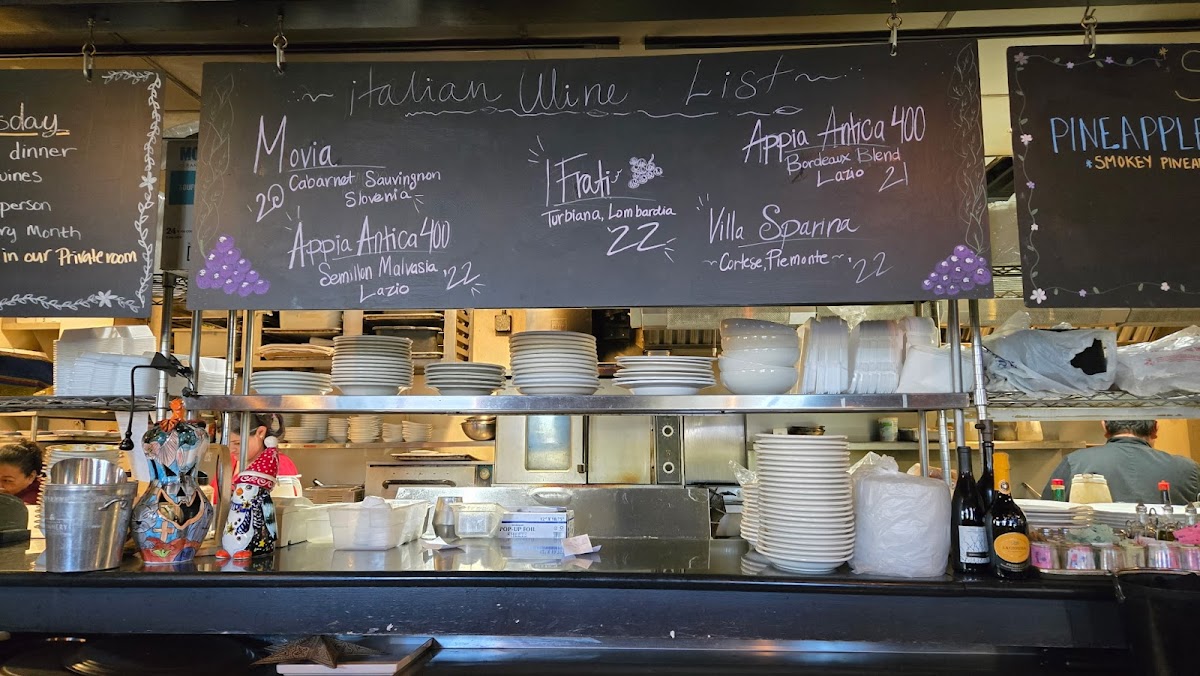 sday
dinner
uines
person
ry Month
in our Private room
~ italian Wine List ~
Movia
Cabarnet Sauvingnon
Slovenia
20
Appia Antica 400
Semillon Malvasia
Lazio
'22
I Frati
Turbiana, Lombardia
22
Appia Antica 400
Bordeaux Blend
Lazio 21
Villa Sparina
~Cortese, Piemonte~
'22
S
PINEAPPLE
*SMOKEY PINEAP
POP-UP FOIL